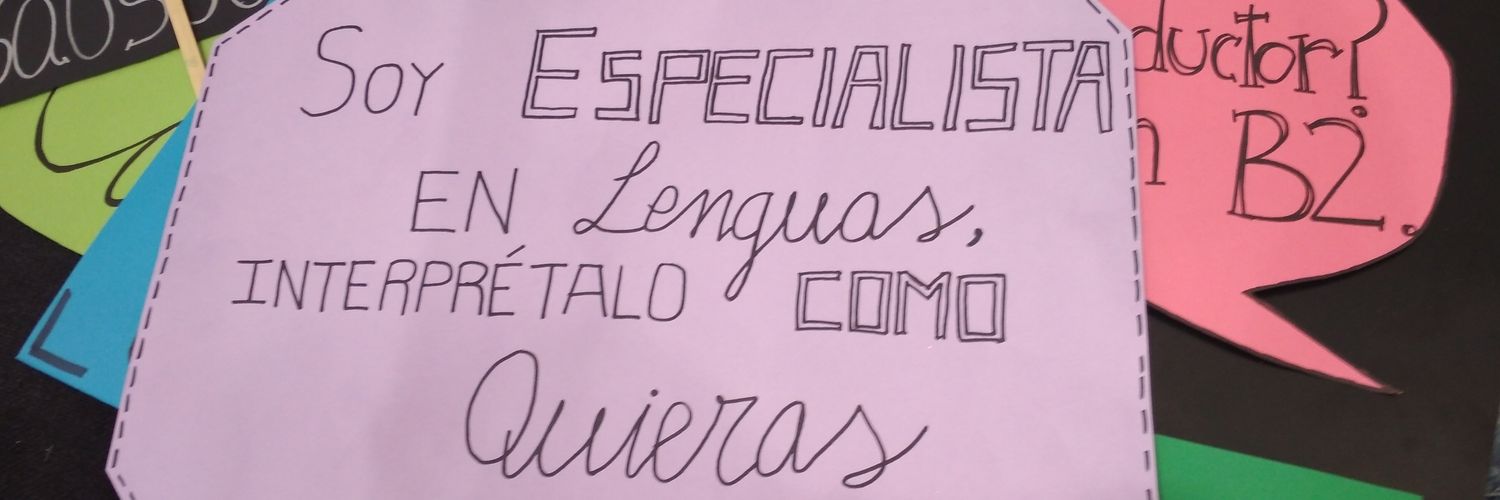 Soy ESPECIALISTA
EN Lenguas,
INTERPRÉTALO COMO
Quieras
B2.